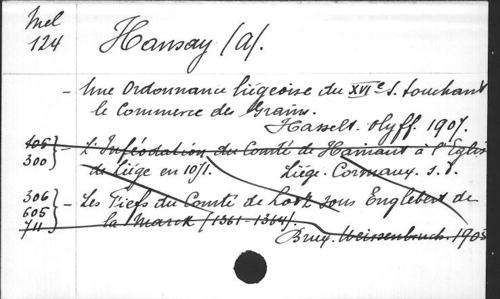 Mel
124
Hansay (A).
- Une Ordonnance liégeoise du XVIe s. touchant
le Commerce des Grains.
Hasselt. Olyff. 1907.
106
300
- L'Inféodation du Comté de Hainaut à l'Eglise
de Liège en 1071. Liége. Cormaux. s. d.
306
605
711
- Les Fiefs du Comté de Looz sous Englebert de
la Marck (1361-1364).
Brux. Weissenbruch. 1905